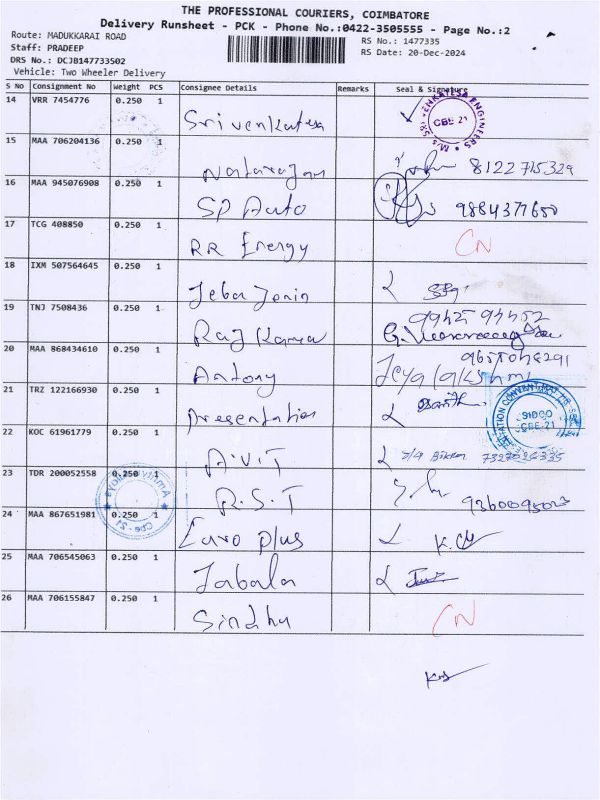 THE PROFESSIONAL COURIERS, COIMBATORE
Delivery Runsheet - PCK - Phone No.:0422-3505555 - Page No.:2
Route: MADUKKARAI ROAD
Staff: PRADEEP
DRS No.: DCJB147733502
Vehicle: Two Wheeler Delivery
RS No.: 1477335
RS Date: 20-Dec-2024
S No Consignment No Weight PCS Consignee Details Remarks Seal & Signature
14 VRR 7454776 0.250 1 Sri venkatesa
CBE 21
15 MAA 706204136 0.250 1 Natarajan 8122715329
16 MAA 945076908 0.250 1 SP Auto 9884377650
17 TCG 408850 0.250 1 RR Energy CN
18 IXM 507564645 0.250 1 Jeba Jenin
19 TNJ 7508436 0.250 1 Raj Kumar
20 MAA 868434610 0.250 1 Antony Jeyalakshmi
21 TRZ 122166930 0.250 1 Presentation
SIDCO
CBE-21
22 KOC 61961779 0.250 1 A.V.T
23 TDR 200052558 0.250 1 R.S.T
24 MAA 867651981 0.250 1 Euro plus
Cbe - 21
25 MAA 706545063 0.250 1 Jabala
26 MAA 706155847 0.250 1 Sindhu CN